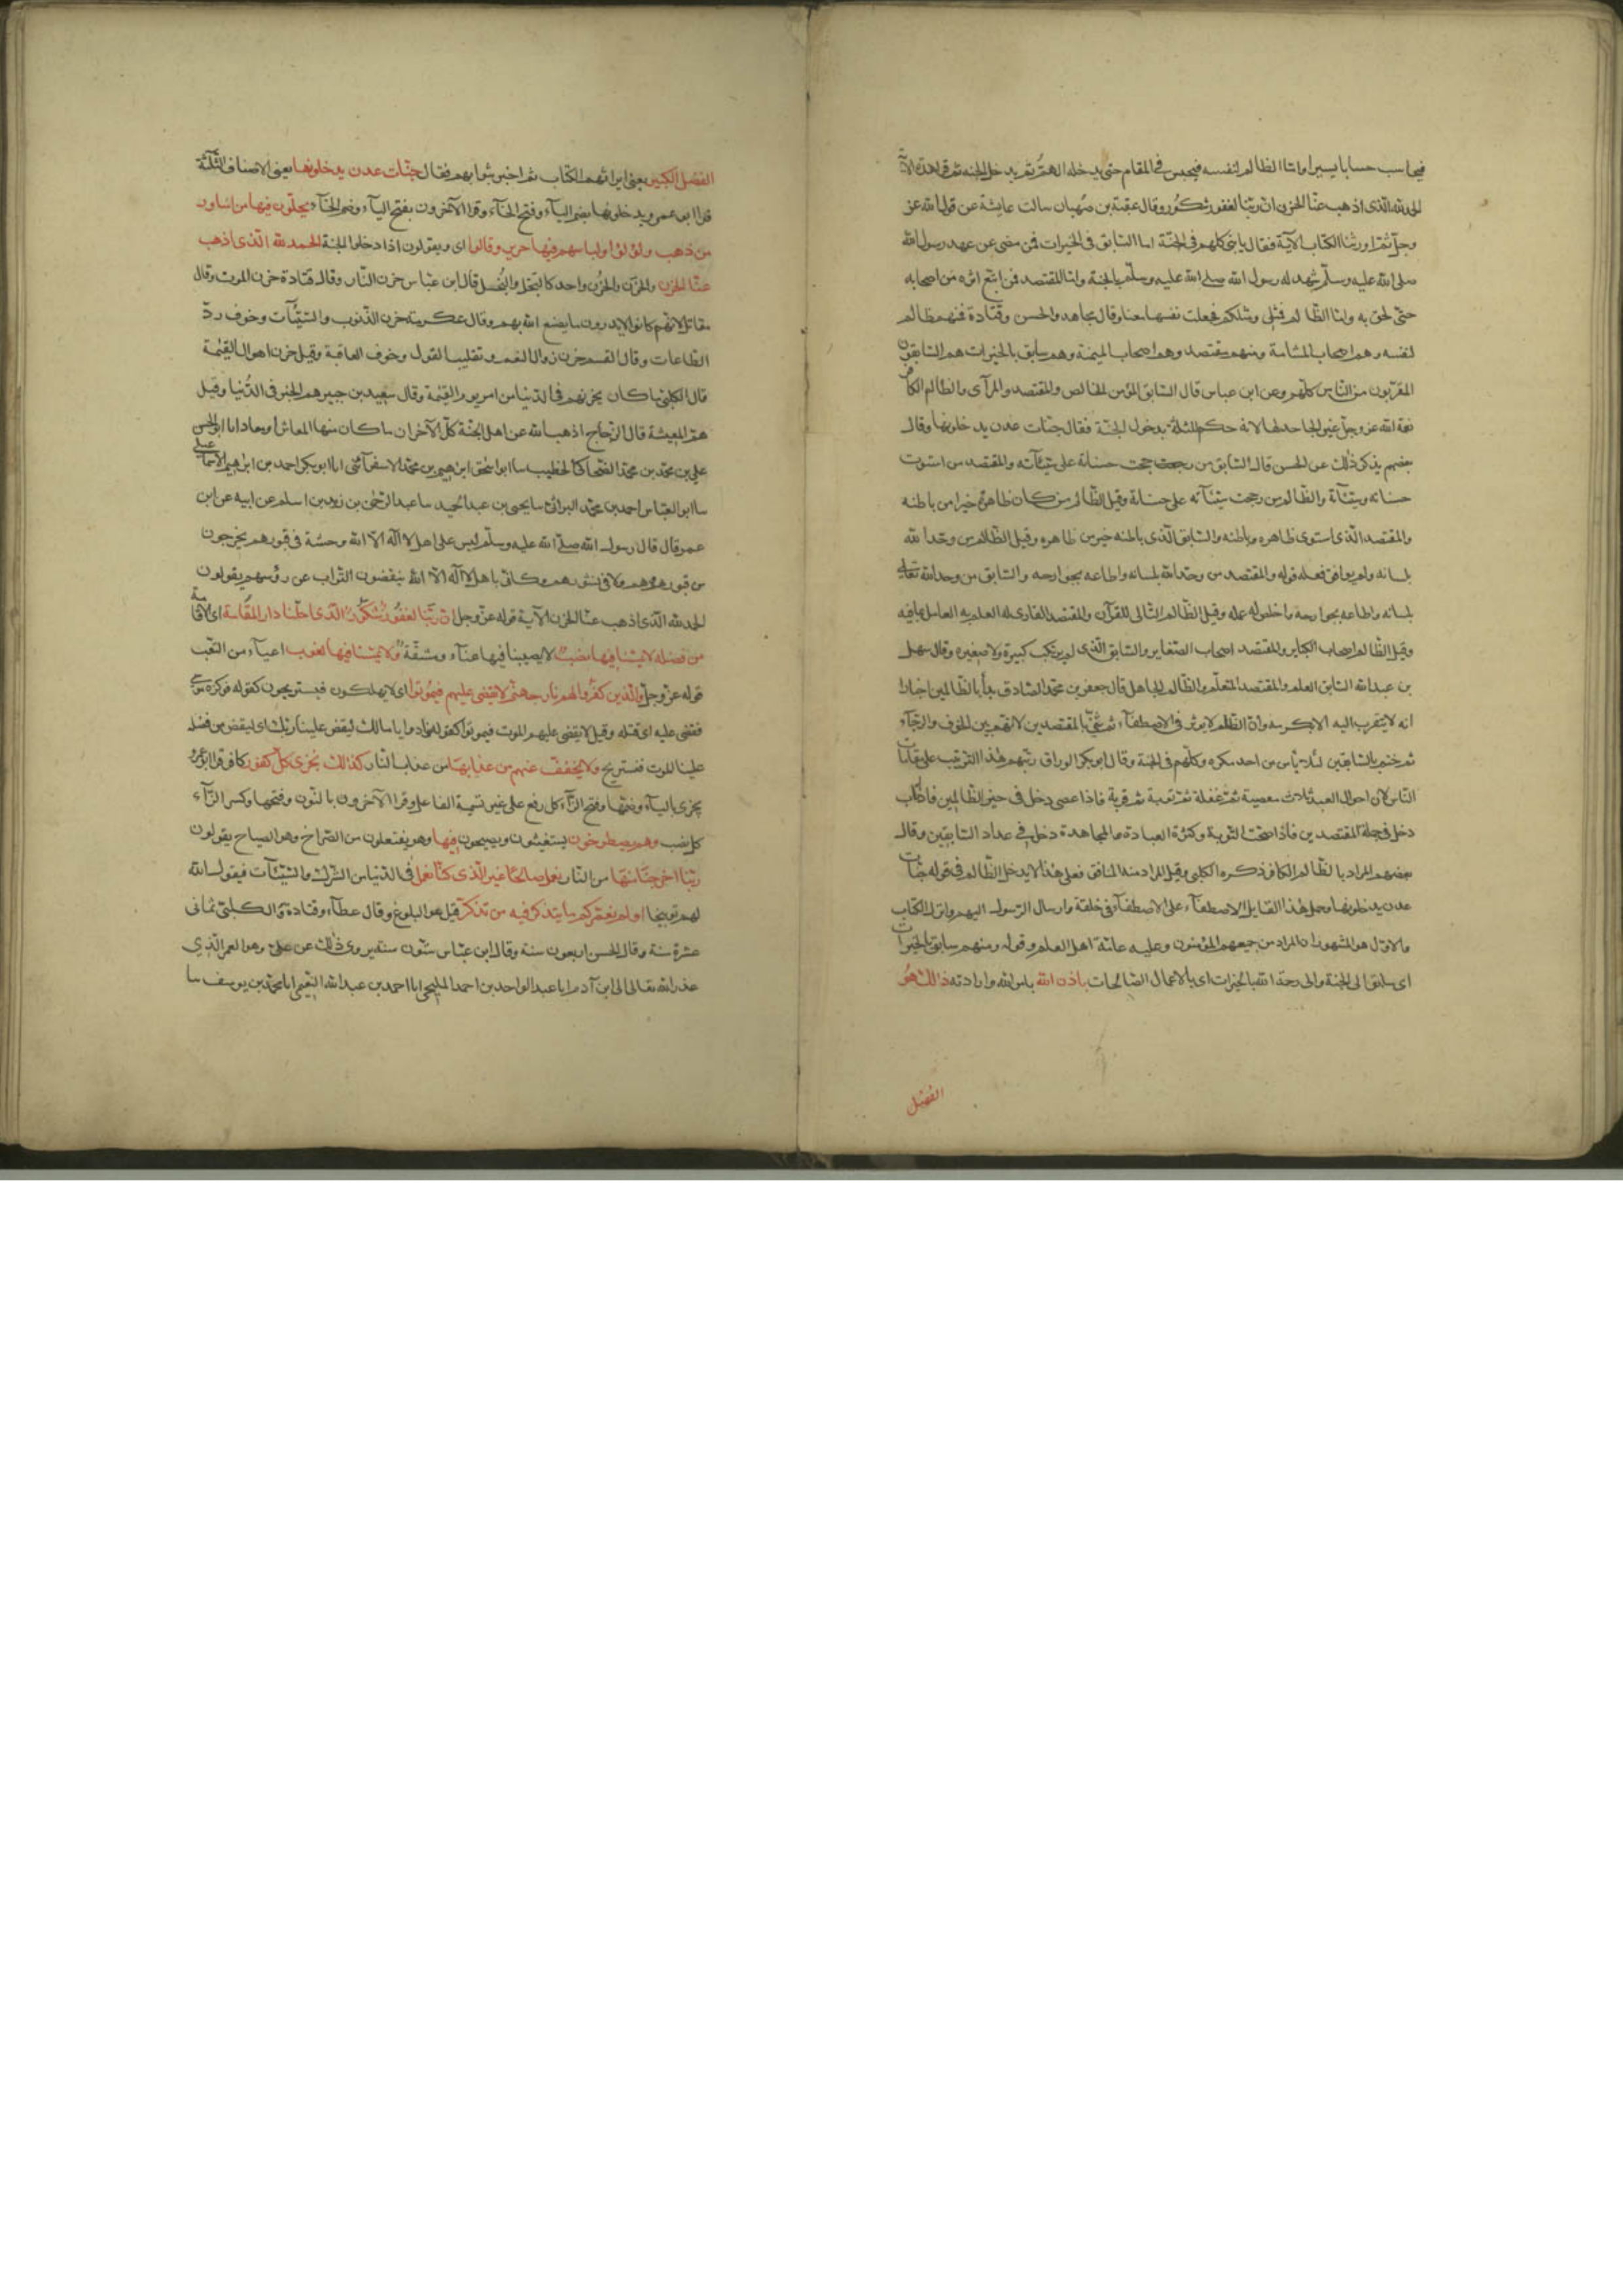 فيحاسب حسابا يسيرا واما الظالم لنفسه فيحبس في المقام حتى يدخله الهم ثم يدخل الجنة ثم قرا هذه الآية
الحمد لله الذى اذهب عنا الحزن ان ربنا لغفور شكور وقال عقبة بن صهبان سالت عايشة عن قول الله عز
وجل ثم اورثنا الكتاب الآية فقالت يا بنى كلهم فى الجنة اما السابق فى الخيرات فمن مضى عن عهد رسول الله
صلى الله عليه وسلم شهد له رسول الله صلى الله عليه وسلم بالجنة واما المقتصد فمن اتبع اثره من اصحابه
حتى لحق به واما الظالم فمثلى ومثلكم فجعلت نفسها معنا وقال مجاهد والحسن وقتادة فمنهم ظالم
لنفسه وهم اصحاب المشأمة ومنهم مقتصد وهم اصحاب الميمنة وهم سابق بالخيرات هم السابقون
المقربون من الناس كلهم وعن ابن عباس قال السابق المؤمن المخالص والمقتصد والمرآى والظالم الكافر
نعمة الله عز وجل غير الجاحد لها لانه حكم للثلثة بدخول الجنة فقال جنات عدن يدخلونها وقال
بعضهم يذكر ذلك عن الحسن قال السابق من رجحت حسناته على سيئآته والمقتصد من استوت
حسناته وسيئاته والظالم من رجحت سيئآته على حسناته وقيل الظالم من كان ظاهره خيرا من باطنه
والمقتصد الذى استوى ظاهره وباطنه والسابق الذى باطنه خير من ظاهره وقيل الظالم من وحد الله
بلسانه ولم يوافق فعله قوله والمقتصد من وحد الله بلسانه واطاعه بجوارحه والسابق من وحد الله تعالى
بلسانه واطاعه بجوارحه واخلص له عمله وقيل الظالم التالى للقرآن والمقتصد القارى له العلم به العامل بما فيه
وقيل الظالم اصحاب الكباير والمقتصد اصحاب الصغاير والسابق الذى لم يرتكب كبيرة ولا صغيرة وقال سهل
بن عبد الله السابق العلم والمقتصد المتعلم والظالم الجاهل قال جعفر بن محمد الصادق بدأ بالظالمين اخبارا
انه لا يتقرب اليه الا بكرمه وان الظلم لا يوثر فى الاصطفآء ثم ثنى بالمقتصدين لانهم بين الخوف والرجآء
ثم ختم بالسابقين لئلا يأس من احد مكره وكلهم فى الجنة وقال ابو بكر الوراق رتبهم هذا الترتيب على مقامات
الناس لان احوال العبد ثلاث معصية ثم غفلة ثم توبة ثم قربة فاذا عصى دخل فى حيز الظالمين فاذا تاب
دخل فى جملة المقتصدين فاذا صحت التوبة وكثرة العبادة والمجاهدة دخل فى عداد السابقين وقال
بعضهم المراد بالظالم الكافر ذكره الكلبى وقيل المراد منه المنافق فعلى هذا لا يدخل الظالم فى قوله جنات
عدن يدخلونها وحمل هذا القايل الاصطفآء على الاصطفآء فى خلقة وارسال الرسول اليهم وانزال الكتاب
والاول هو المشهور ان المراد من جميعهم المؤمنون وعليه عامة اهل العلم وقوله ومنهم سابق بالخيرات
اى سابق الى الجنة والى رحمة الله بالخيرات اى بالاعمال الصالحات باذن الله بامر الله وارادته ذلك هو
الفضل
الفضل الكبير يعنى ايراثهم الكتاب ثم اخبر بثوابهم فقال جنات عدن يدخلونها يعنى الاصناف الثلثة
قرا ابو عمرو يدخلونها بضم اليآء وفتح الخآء وقرا الآخرون بفتح اليآء وضم الخآء يحلون فيها من اساور
من ذهب ولؤلؤا ولباسهم فيها حرير وقالوا اى ويقولون اذا دخلوا الجنة الحمد لله الذى اذهب
عنا الحزن والحزن والحزن واحد كالبخل والبخل قال ابن عباس حزن النار وقال قتادة حزن الموت وقال
مقاتل لانهم كانوا لا يدرون ما يصنع الله بهم وقال عكرمة حزن الذنوب والسيئات وخوف رد
الطاعات وقال القسم حزن زوال النعم وتقليب القول وخوف العاقبة وقيل حزن اهوال القيمة
قال الكلبى ما كان يحزنهم فى الدنيا من امر يوم القيمة وقال سعيد بن جبير هم الخبز فى الدنيا وقيل
هم المعيشة قال الزجاج اذهب الله عن اهل الجنة كل الاحزان ما كان منها المعاش او معاد انا ابو الحسن
على بن محمد بن محمد الضحاك الخطيب سا ابو اسحق ابراهيم بن محمد الاسفرآئنى انا ابو بكر احمد بن ابراهيم الاسماعيلى
سا ابو العباس احمد بن محمد البراثى سا يحيى بن عبد الحميد سا عبد الرحمن بن زيد بن اسلم عن ابيه عن ابن
عمر قال قال رسول الله صلى الله عليه وسلم ليس على اهل لا اله الا الله وحشة فى قبورهم يخرجون
من قبورهم ولا فى نشرهم وكانى باهل لا اله الا الله ينفضون التراب عن رؤسهم يقولون
الحمد لله الذى اذهب عنا الحزن الآية قوله عز وجل ان ربنا لغفور شكور الذى احلنا دار المقامة اى الاقامة
من فضله لا يمسنا فيها نصب لا يصيبنا فيها عنآء ومشقة ولا يمسنا فيها لغوب اعيآء من التعب
قوله عز وجل والذين كفروا لهم نار جهنم لا يقضى عليهم فيموتوا اى لا يهلكون فيستريحون كقوله فوكزه موسى
فقضى عليه اى قتله وقيل لا يقضى عليهم الموت فيموتوا كقوله ونادوا يا مالك ليقض علينا ربك اى ليقض من فضله
علينا الموت فنستريح ولا يخفف عنهم من عذابها من عذاب النار كذلك نجزى كل كفور كافر قرا ابو عمرو
يجزى باليآء وضمها وفتح الزآء كل رفع على غير تسمية الفاعل وقرا الآخرون بالنون وفتحها وكسر الزآء
كل نصب وهم يصطرخون يستغيثون ويصيحون فيها وهو يفتعلون من الصراخ وهو الصياح يقولون
ربنا اخرجنا منها من النار نعمل صالحا غير الذى كنا نعمل فى الدنيا من الشرك والسيئآت فيقول الله
لهم توبيخا اولم نعمركم ما يتذكر فيه من تذكر قيل هو البلوغ وقال عطآء وقتادة والكلبى ثمانى
عشرة سنة وقال الحسن اربعون سنة وقال ابن عباس ستون سنة يروى ذلك عن على وهو العمر الذى
عذر الله تعالى الى ابن آدم انا عبد الواحد بن احمد المليحى انا احمد بن عبد الله النعيمى انا محمد بن يوسف سا